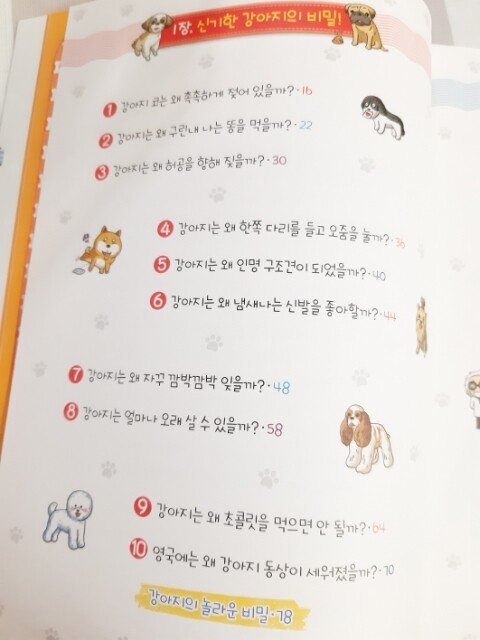 1장. 신기한 강아지의 비밀!
1 강아지 코는 왜 촉촉하게 젖어 있을까?·16
2 강아지는 왜 구린내 나는 똥을 먹을까?·22
3 강아지는 왜 허공을 향해 짖을까?·30
4 강아지는 왜 한쪽 다리를 들고 오줌을 눌까?·36
5 강아지는 왜 인명 구조견이 되었을까?·40
6 강아지는 왜 냄새나는 신발을 좋아할까?·44
7 강아지는 왜 자꾸 깜박깜박 잊을까?·48
8 강아지는 얼마나 오래 살 수 있을까?·58
9 강아지는 왜 초콜릿을 먹으면 안 될까?·64
10 영국에는 왜 강아지 동상이 세워졌을까?·70
강아지의 놀라운 비밀·78